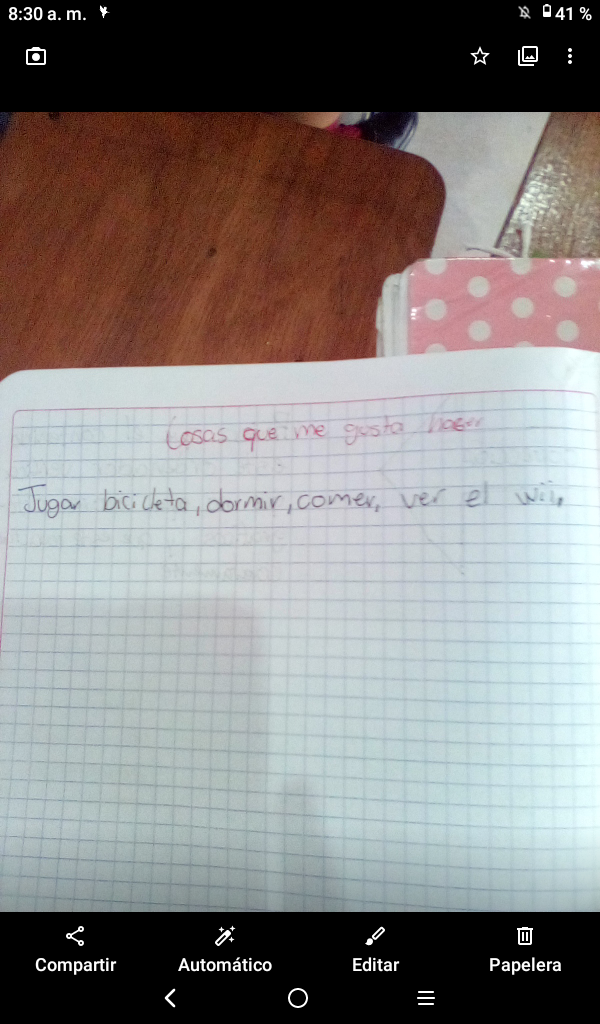 8:30 a. m.
41 %
Cosas que me gusta hacer
Jugar bicicleta, dormir, comer, ver el wii.
Compartir Automático Editar Papelera